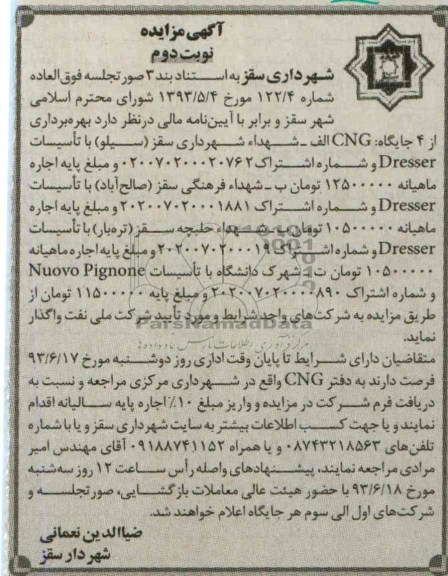 آگهی مزایده
نوبت دوم
شهرداری سقز به استناد بند ۳ صورتجلسه فوق‌العاده
شماره ۱۲۲/۴ مورخ ۱۳۹۳/۵/۴ شورای محترم اسلامی
شهر سقز و برابر با آیین‌نامه مالی درنظر دارد بهره‌برداری
از ۴ جایگاه: CNG الف ـ شهداء شهرداری سقز (سیلو) با تأسیسات
Dresser و شماره اشتراک ۰۲۰۰۷۰۲۰۰۰۲۰۷۶۲ و مبلغ پایه اجاره
ماهیانه ۱۲۵۰۰۰۰۰ تومان ب ـ شهداء فرهنگی سقز (صالح‌آباد) با تأسیسات
Dresser و شماره اشتراک ۲۰۲۰۰۷۰۲۰۰۰۱۸۸۱ و مبلغ پایه اجاره
ماهیانه ۱۰۵۰۰۰۰۰ تومان پ ـ شهداء حلبچه سقز (تره‌بار) با تأسیسات
Dresser و شماره اشتراک ۲۰۲۰۰۷۰۲۰۰۰۱۹ و مبلغ پایه اجاره ماهیانه
۱۰۵۰۰۰۰۰ تومان ت ـ شهرک دانشگاه با تأسیسات Nuovo Pignone
و شماره اشتراک ۲۰۲۰۰۷۰۲۰۰۰۰۸۹۰ و مبلغ پایه ۱۱۵۰۰۰۰۰ تومان از
طریق مزایده به شرکت‌های واجد شرایط و مورد تأیید شرکت ملی نفت واگذار
نماید.
متقاضیان دارای شرایط تا پایان وقت اداری روز دوشنبه مورخ ۹۳/۶/۱۷
فرصت دارند به دفتر CNG واقع در شهرداری مرکزی مراجعه و نسبت به
دریافت فرم شرکت در مزایده و واریز مبلغ ۱۰٪ اجاره پایه سالیانه اقدام
نمایند و یا جهت کسب اطلاعات بیشتر به سایت شهرداری سقز و یا با شماره
تلفن‌های ۰۸۷۴۳۲۱۸۵۶۳ و یا همراه ۰۹۱۸۸۷۴۱۱۵۲ آقای مهندس امیر
مرادی مراجعه نمایند، پیشنهادهای واصله رأس ساعت ۱۲ روز سه‌شنبه
مورخ ۹۳/۶/۱۸ با حضور هیئت عالی معاملات بازگشایی، صورتجلسه و
شرکت‌های اول الی سوم هر جایگاه اعلام خواهند شد.
ضیاالدین نعمانی
شهردار سقز
ParsNamadData